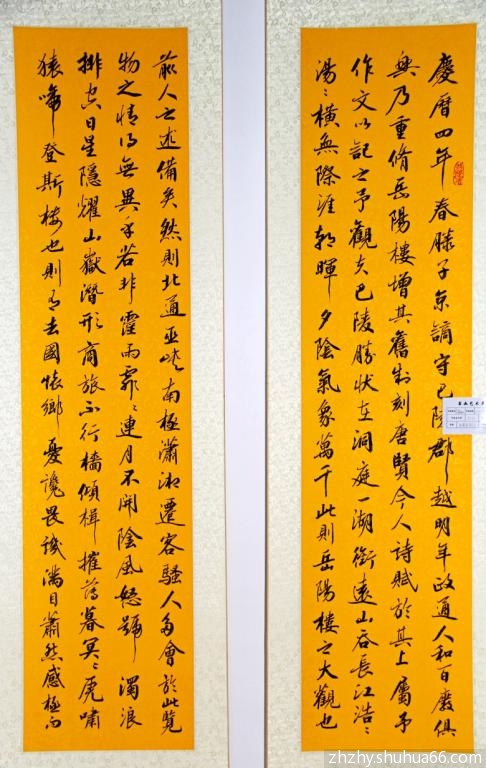 慶曆四年春滕子京謫守巴陵郡越明年政通人和百廢俱
興乃重脩岳陽樓增其舊制刻唐賢今人詩賦於其上屬予
作文以記之予觀夫巴陵勝狀在洞庭一湖銜遠山吞長江浩〻
湯〻橫無際涯朝暉夕陰氣象萬千此則岳陽樓之大觀也
前人之述備矣然則北通巫峽南極瀟湘遷客騷人多會於此覽
物之情得無異乎若非霪雨霏〻連月不開陰風怒號濁浪
排空日星隱耀山嶽潛形商旅不行檣傾楫摧薄暮冥〻虎嘯
猿啼登斯樓也則有去國懷鄉憂讒畏譏滿目蕭然感極而
zhzhy.shuhua66.com